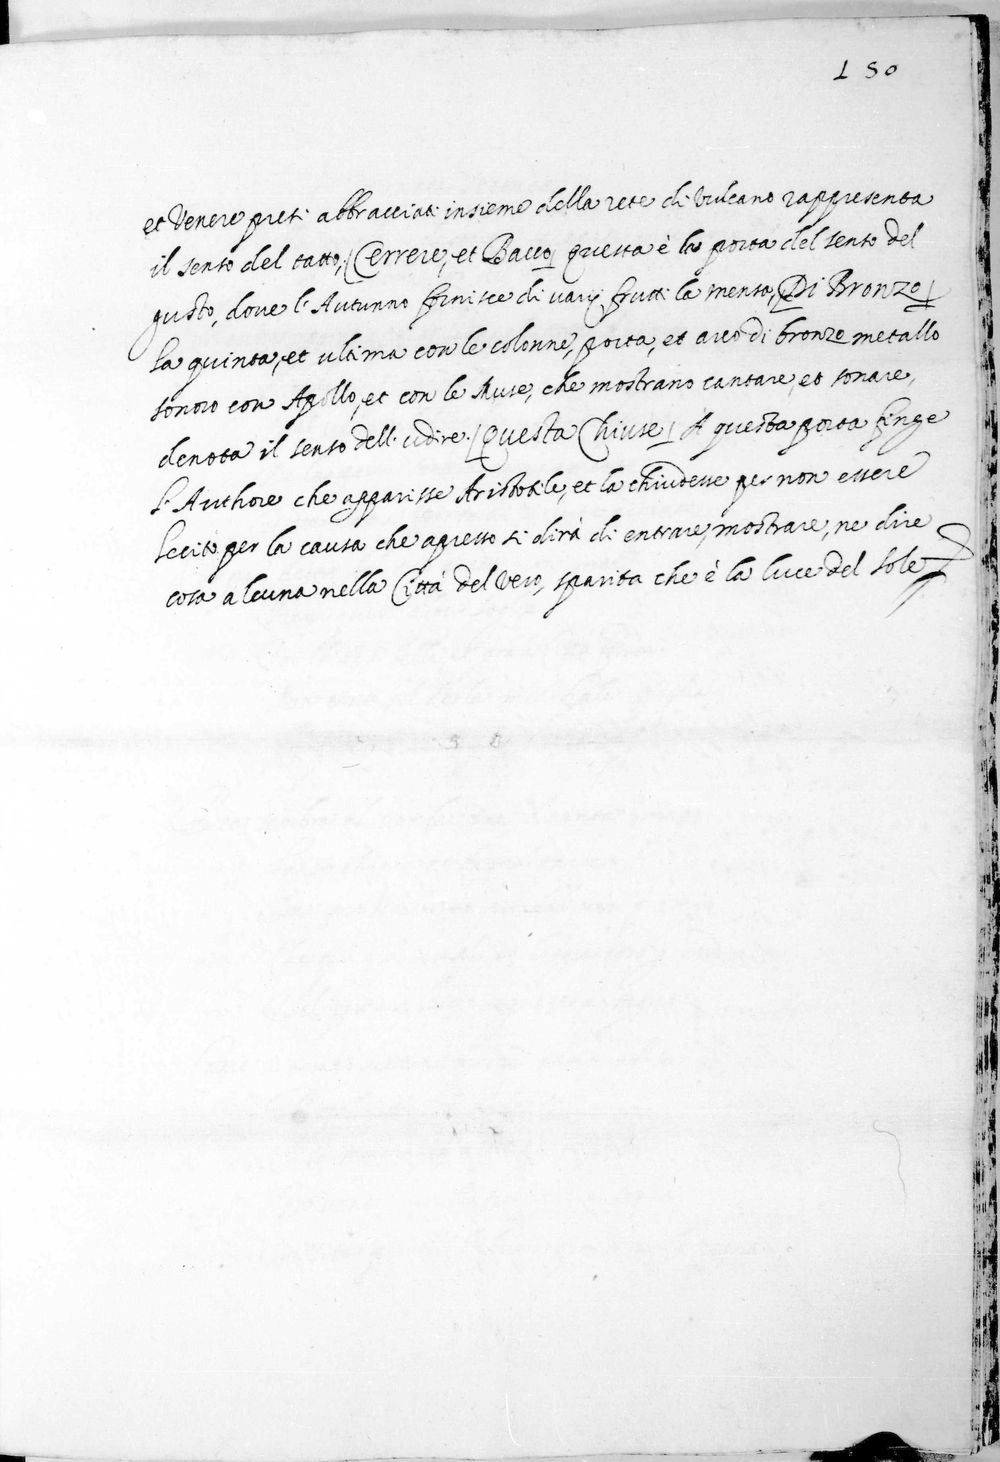 150
et Venere presi abbracciati insieme della rete di Vulcano rappresenta
il senso del tatto, (Cerrere, et Bacco) questa è la porta del senso del
gusto, dove l'Autunno fornisce di varij frutti la mensa, (Di Bronzo)
la quinta, et ultima con le colonne, porta, et arco di bronzo metallo
sonoro con Apollo, et con le Muse, che mostrano cantare, et sonare,
denota il senso dell'udire. (Questa Chiuse) A questa porta finge
l'Authore che apparisse Aristotile, et la chiudesse per non essere
lecito per la causa che apresso si dirà di entrare, mostrare, ne dire
cosa alcuna nella Città del Vero, sparita che è la luce del Sole